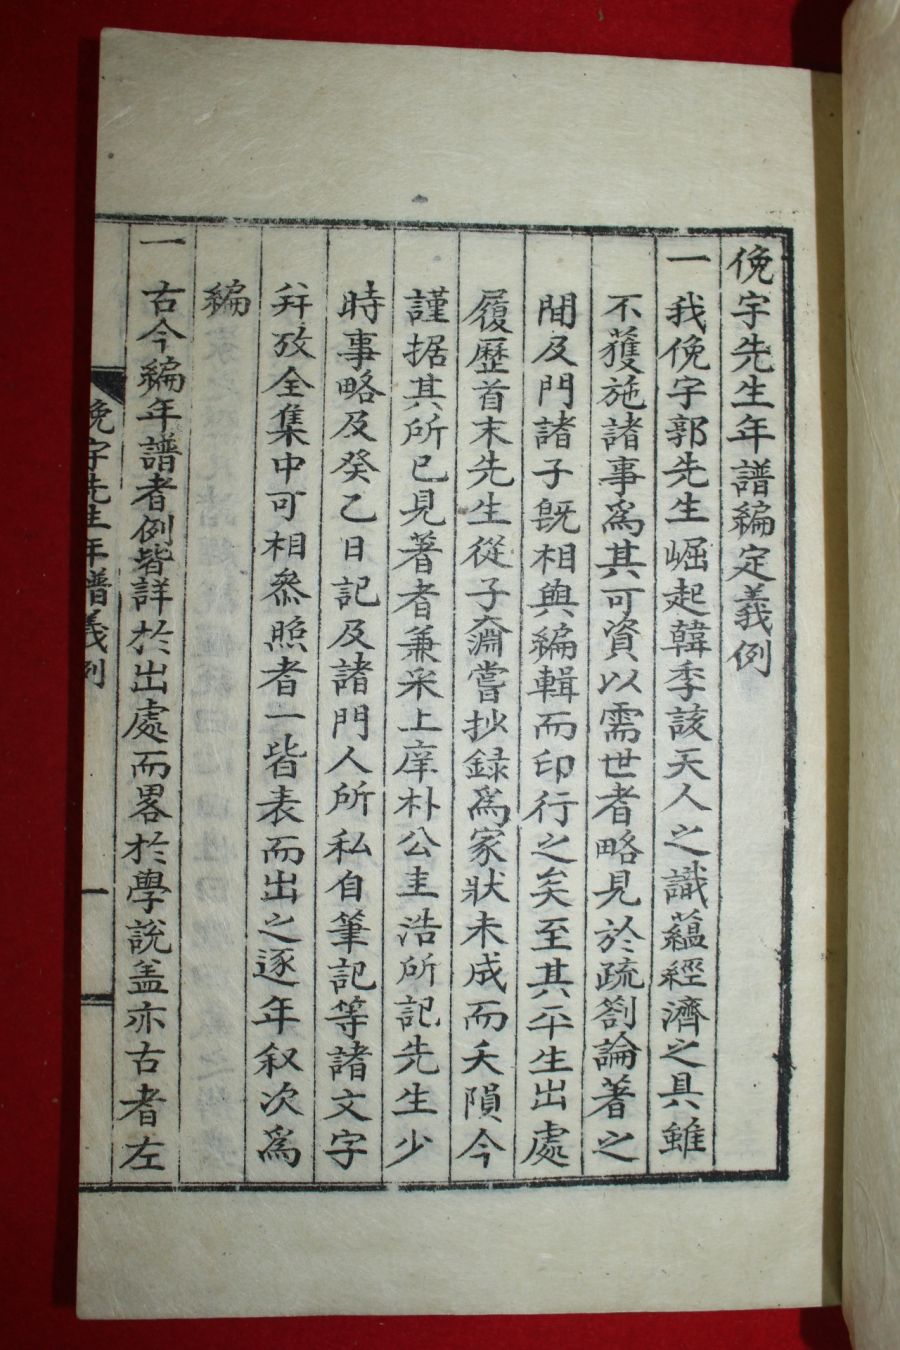 俛宇先生年譜編定義例
一我俛宇郭先生崛起韓季該天人之識蘊經濟之具雖
不獲施諸事爲其可資以需世者略見於疏劄論著之
間及門諸子旣相與編輯而印行之矣至其平生出處
履歷首末先生從子奫嘗抄錄爲家狀未成而夭隕今
謹据其所已見著者兼采上庠朴公圭浩所記先生少
時事略及癸乙日記及諸門人所私自筆記等諸文字
幷攷全集中可相叅照者一皆表而出之逐年叙次爲
編
一古今編年譜者例皆詳於出處而畧於學說盖亦古者左
俛宇先生年譜義例 一